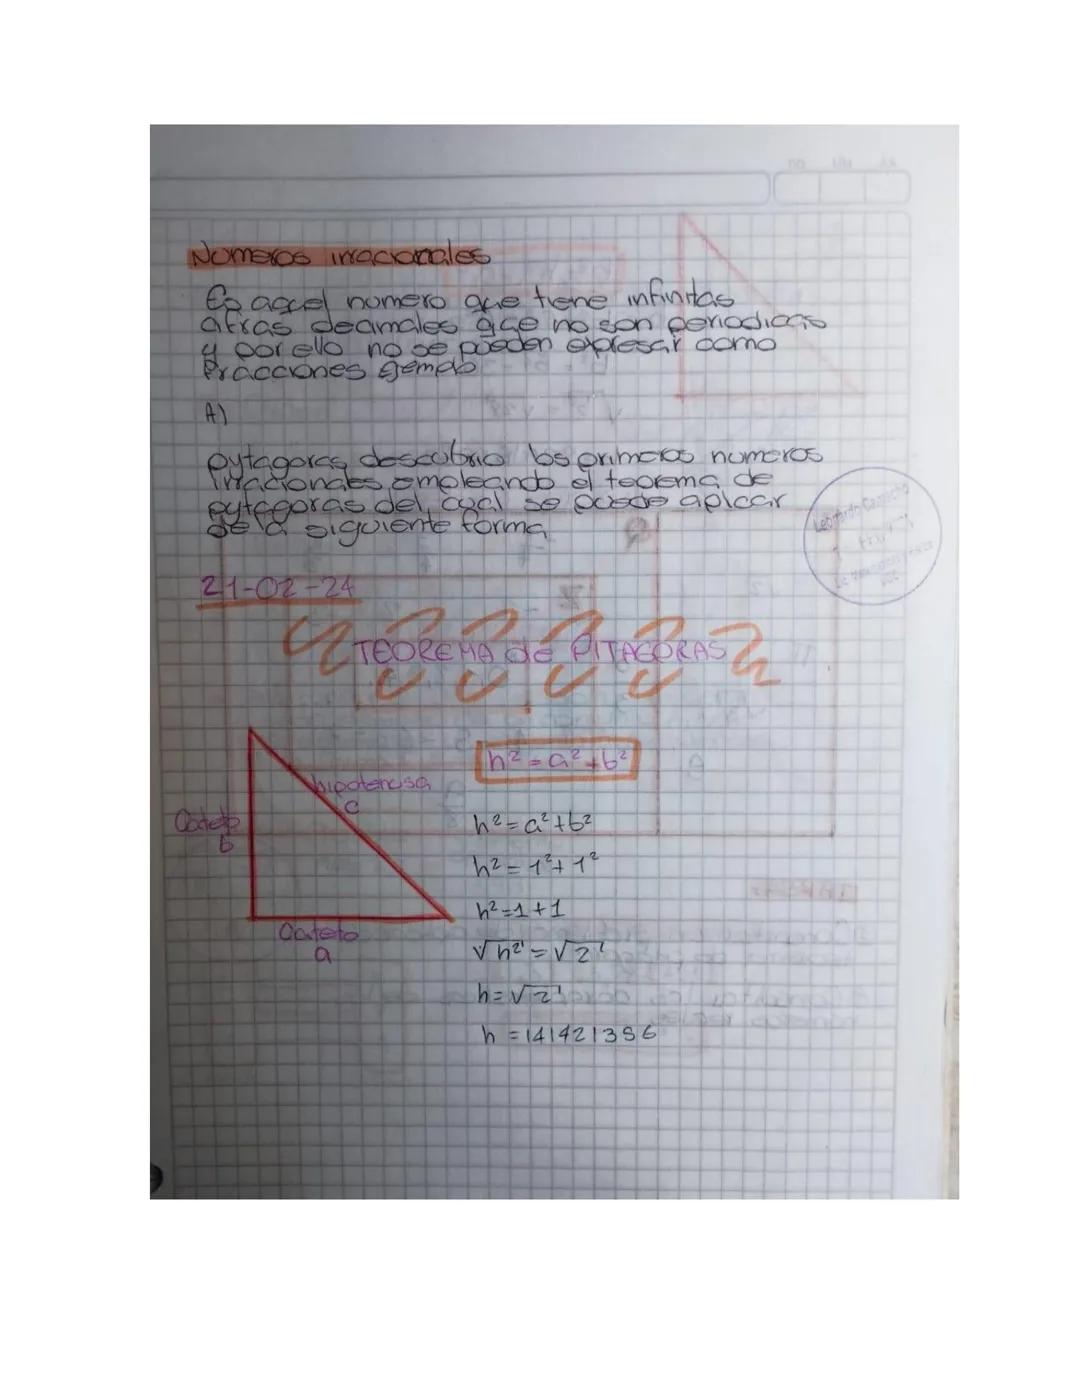 Numeros irracionales
Es aquel numero que tiene infinitas
cifras decimales que no son periodicas
y por ello no se pueden expresar como
Fracciones ejemplo
A)
pytagoras descubrio los primeros numeros
irracionales empleando el teorema de
pytagoras del cual se puede aplicar
de la siguiente forma
21-02-24
TEOREMA de PITAGORAS
h² = a² + b²
hipotenusa
c
Cateto
b
Cateto
a
h² = a² + b²
h² = 1² + 1²
h² = 1 + 1
√h² = √2
h = √2
h = 141421356
Leonardo Camacho